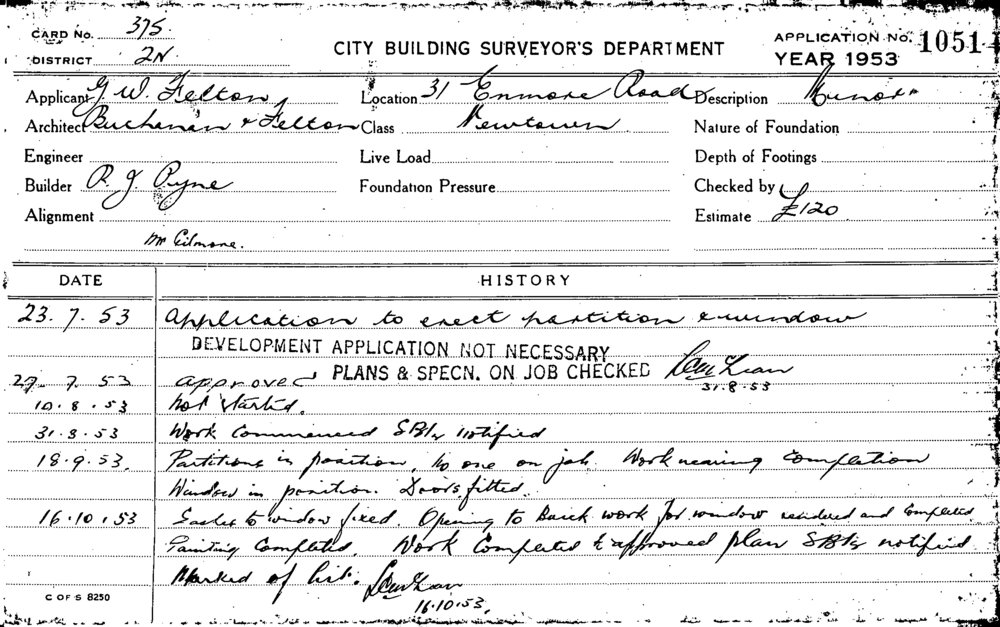 CARD No. 375.
DISTRICT 2N.
CITY BUILDING SURVEYOR'S DEPARTMENT
APPLICATION No. 1051
YEAR 1953
Applicant G. W. Felton Location 31 Enmore Road Description Minor
Architect Buchanan & Felton Class Newtown Nature of Foundation
Engineer Live Load Depth of Footings
Builder R. J. Pyne Foundation Pressure Checked by
Alignment Estimate £120
Mr Gilmore.
DATE HISTORY
23. 7. 53 Application to erect partition & window
DEVELOPMENT APPLICATION NOT NECESSARY
PLANS & SPECN. ON JOB CHECKED
31.8.53
29. 7. 53 approved
10. 8. 53 Not started.
31. 8. 53 Work Commenced notified
18. 9. 53. Partitions in position, No one on job. Work nearing Completion
Window in position. Doors fitted.
16. 10. 53 Sashes to window fixed. Opening to Brick work for window rendered and Completed
Painting Completed. Work Completed to approved plan notified
Marked of list.
16.10.53.
C OF S 8250